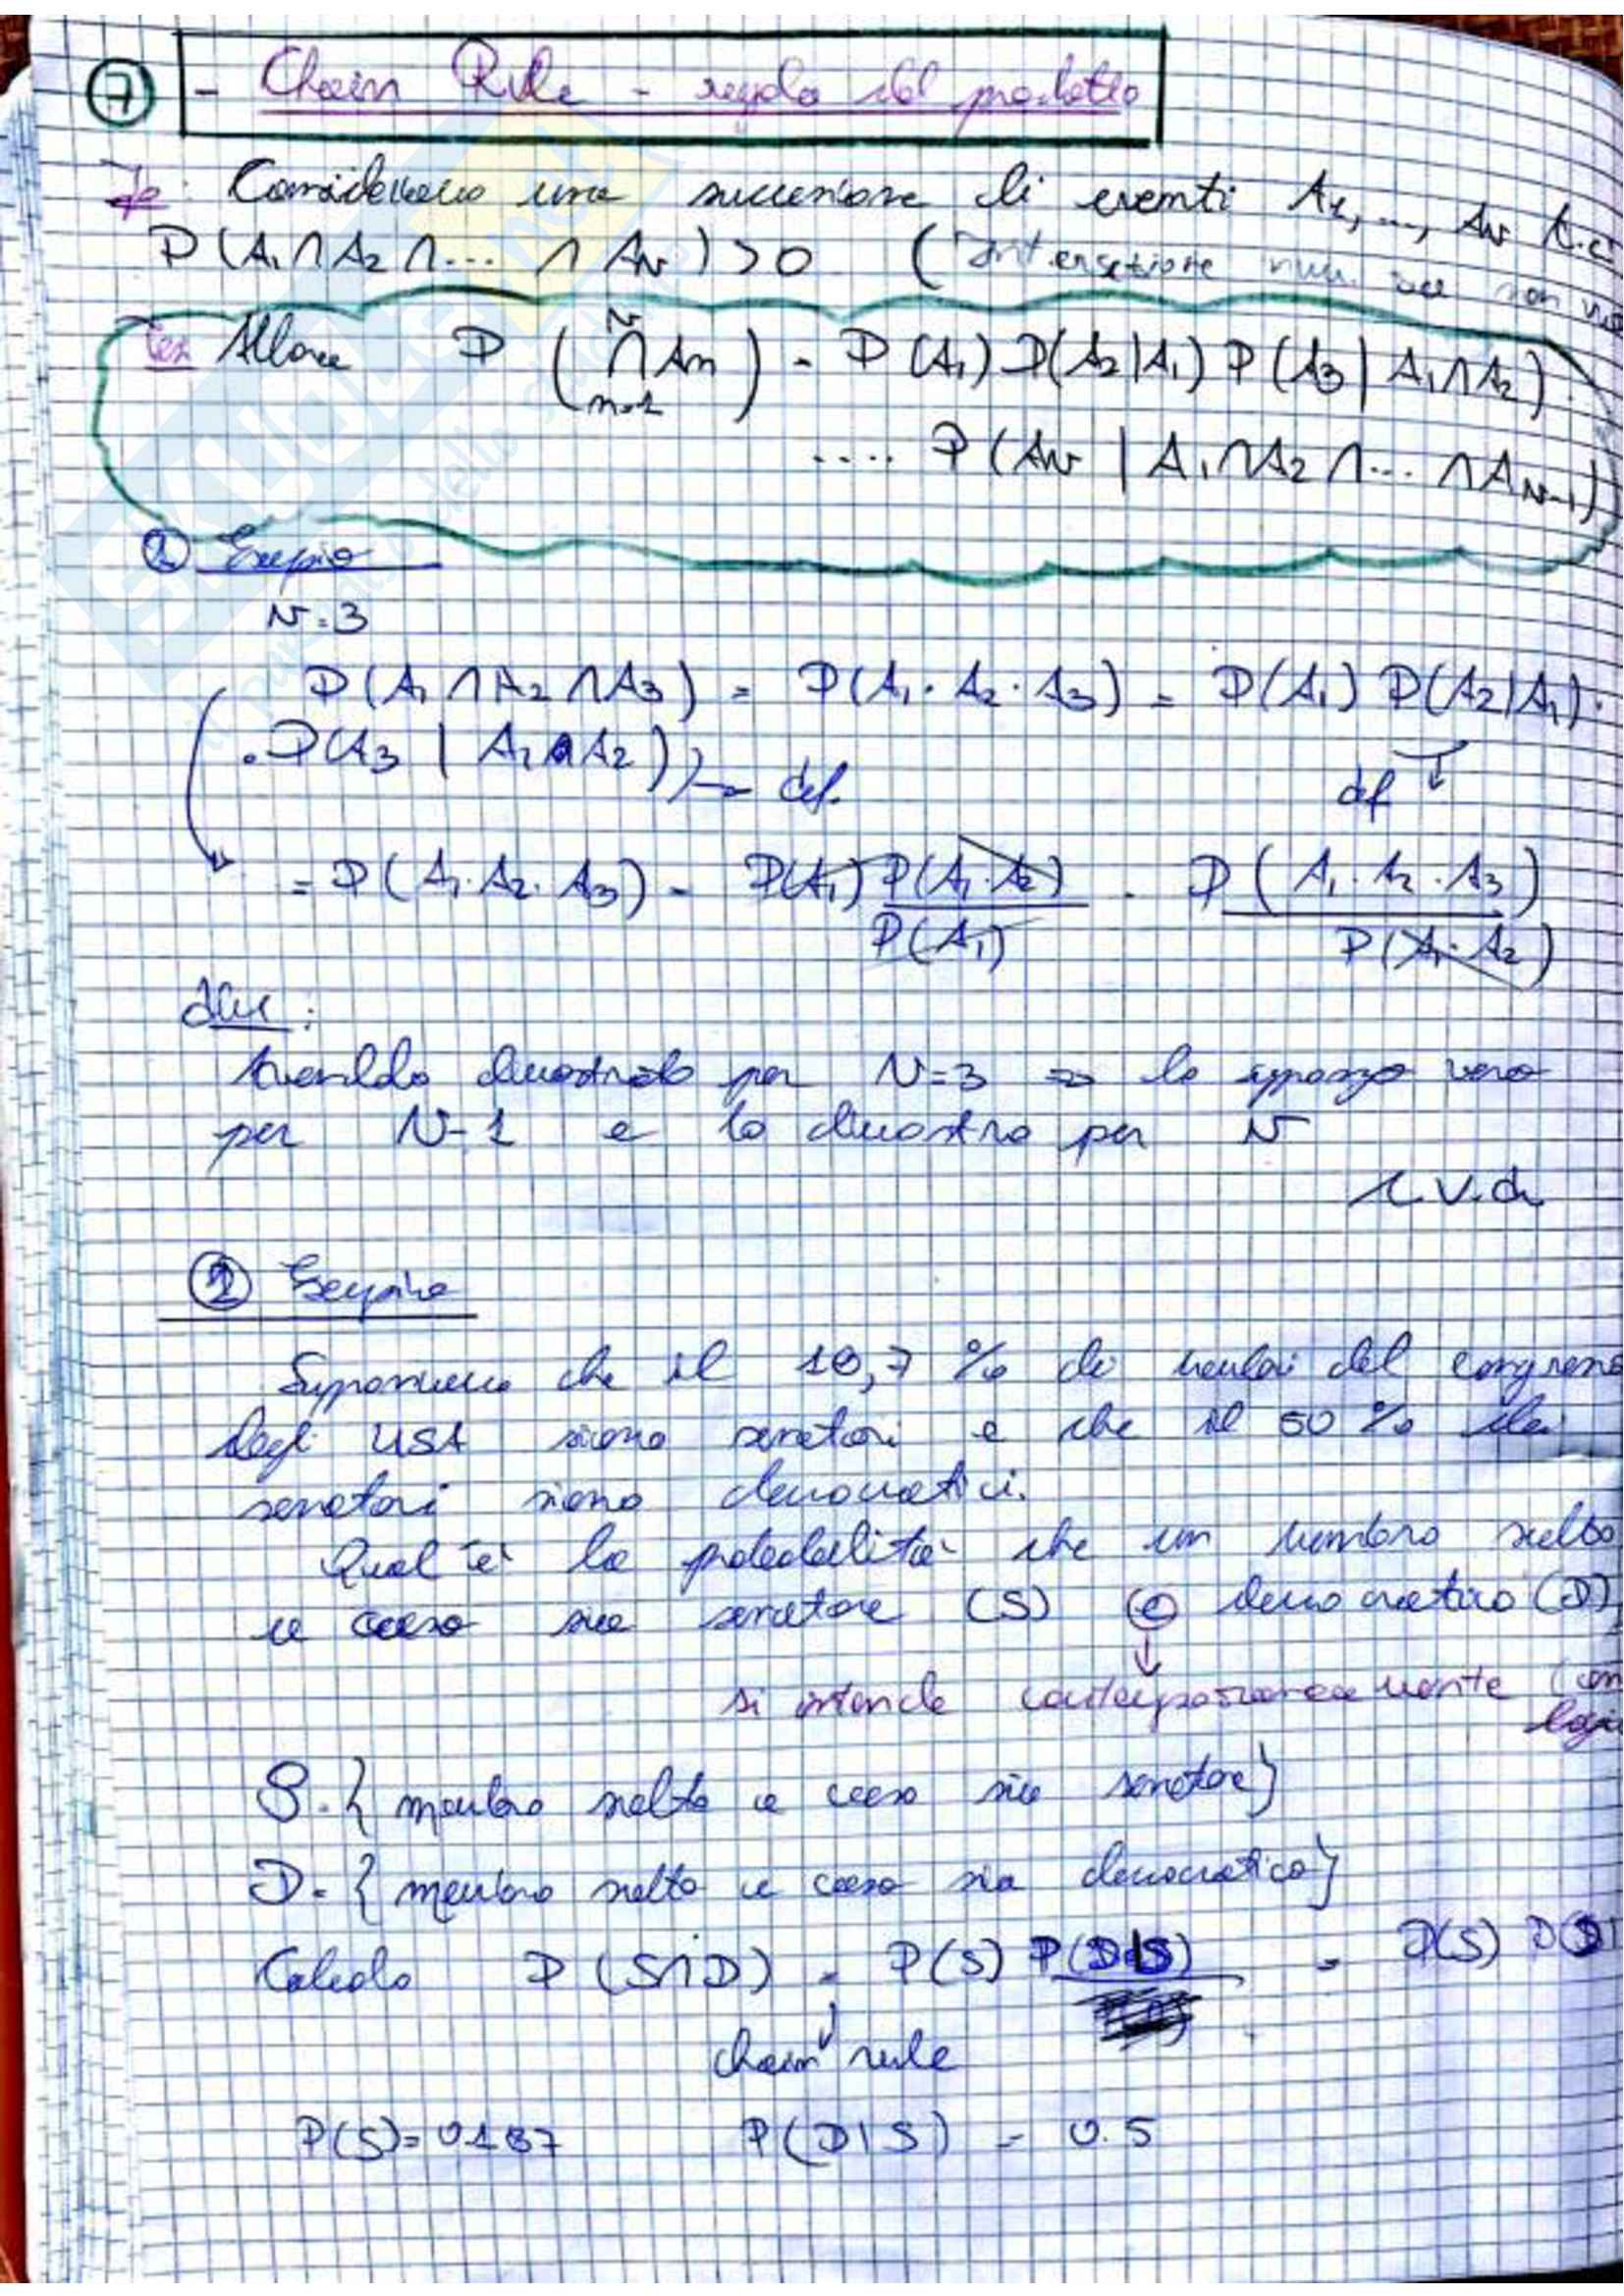 7 - Chain Rule - regola del prodotto
Ip: Consideriamo una successione di eventi A1, ..., AN t.c
P(A1 ∩ A2 ∩ ... ∩ AN) > 0 (Intersezione non
Tes Allora P ( N ∩ An n=1 ) = P(A1) P(A2|A1) P(A3 | A1 ∩ A2) .
.... P(AN | A1 ∩ A2 ∩ ... ∩ AN-1)
1 Esempio
N=3
P(A1 ∩ A2 ∩ A3) = P(A1 · A2 · A3) = P(A1) P(A2|A1) ·
· P(A3 | A1 ∩ A2) → def.
def ↓
= P(A1 · A2 · A3) = P(A1) P(A1 · A2) / P(A1) · P(A1 · A2 · A3) / P(A1 · A2)
dim:
Avendolo dimostrato per N=3 => lo suppongo vero
per N-1 e lo dimostro per N
c.v.d.
2 Esempio
Supponiamo che il 18,7 % dei membri del congresso
degli USA siano senatori e che il 50 % dei
senatori siano democratici.
Qual è la probabilità che un membro scelto
a caso sia senatore (S) e democratico (D)
↓
si intende contemporaneamente (con
S = { membro scelto a caso sia senatore }
D = { membro scelto a caso sia democratico }
Calcolo P (S ∩ D) = P(S) P(D|S) = P(S) P(D|
↓
chain rule
P(S) = 0.187 P(D|S) = 0.5